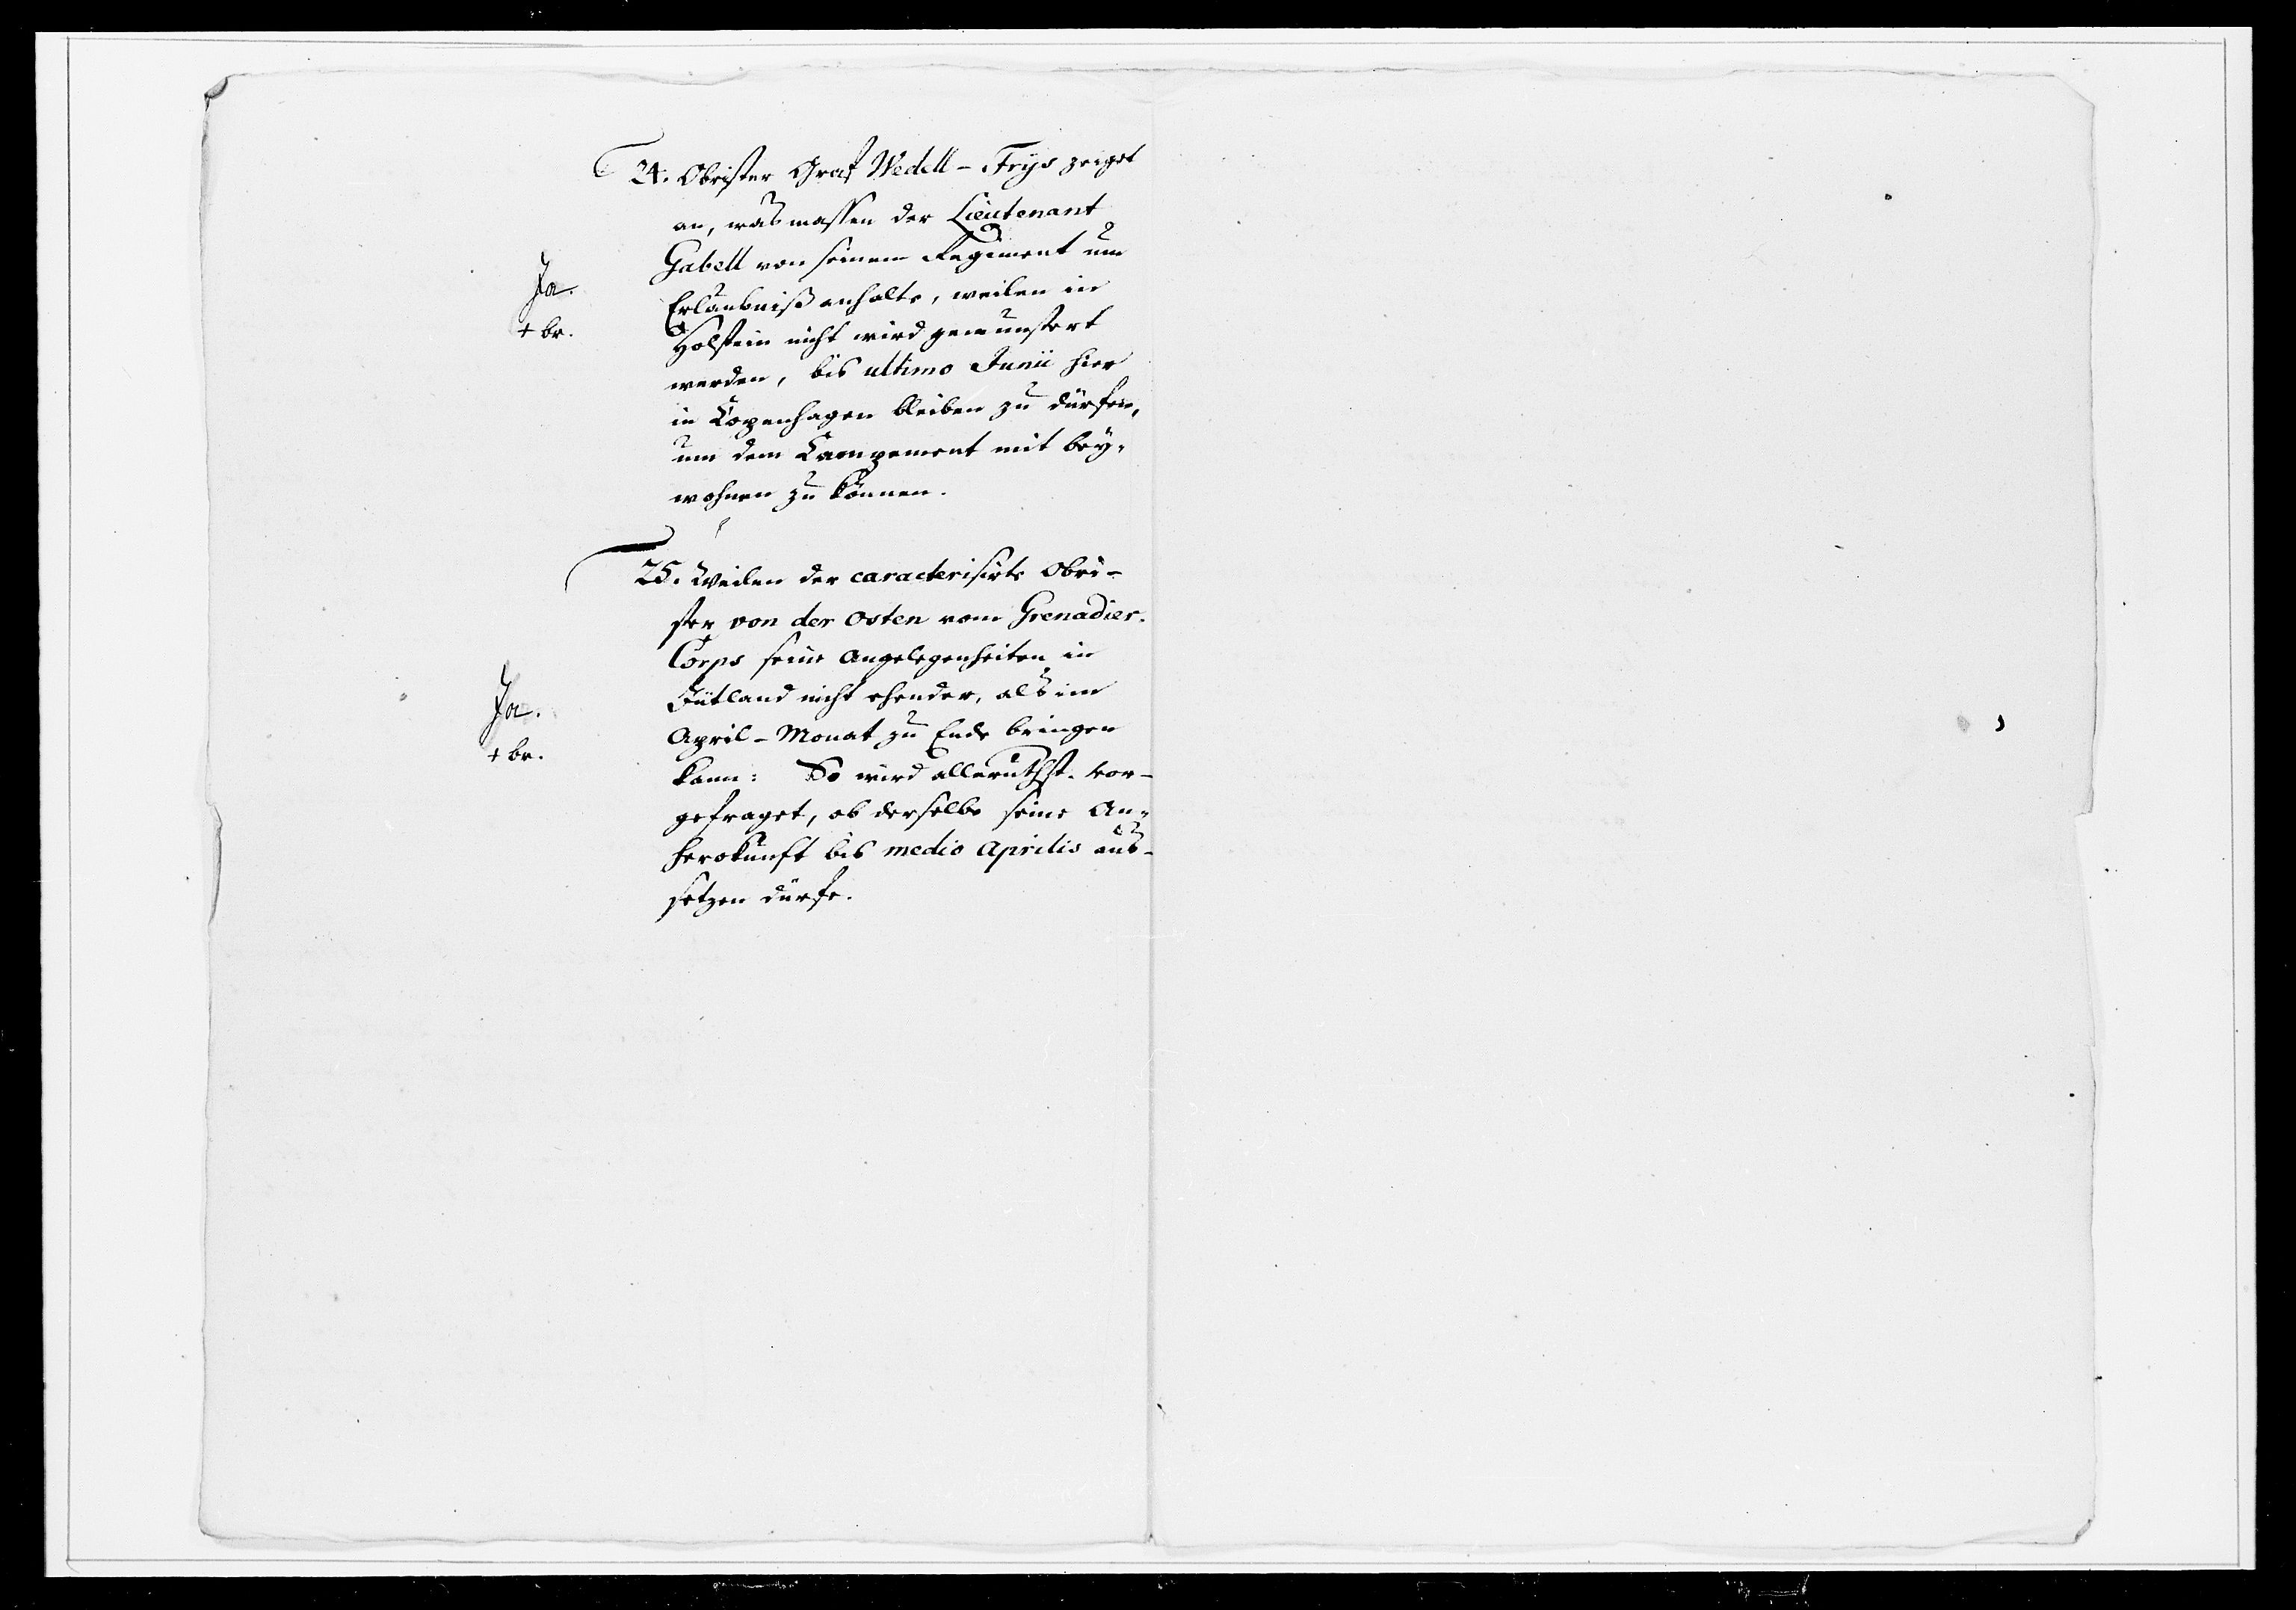 24. Obrister Graf Wedell-Frys zeiget
an, was massen der Lieutenant
Gabell von seinem Regiment um
Erlaubniß anhalte, weilen in
Holstein nicht wird gemunstert
werden, bis ultimo Junii hier
in Copenhagen bleiben zu dürfen,
um dem Campement mit bey-
wohnen zu können.
Ja.
+ br.
25. Weilen der caracterisirte Obri-
ster von der Osten vom Grenadier-
Corps seine Angelegenheiten in
Jütland nicht ehender, als im
April-Monat zu Ende bringen
kann: So wird alleruthst. vor-
gefraget, ob derselbe seine An-
herokunft bis medio Aprilis aus-
setzen dürfe.
Ja.
+ br.